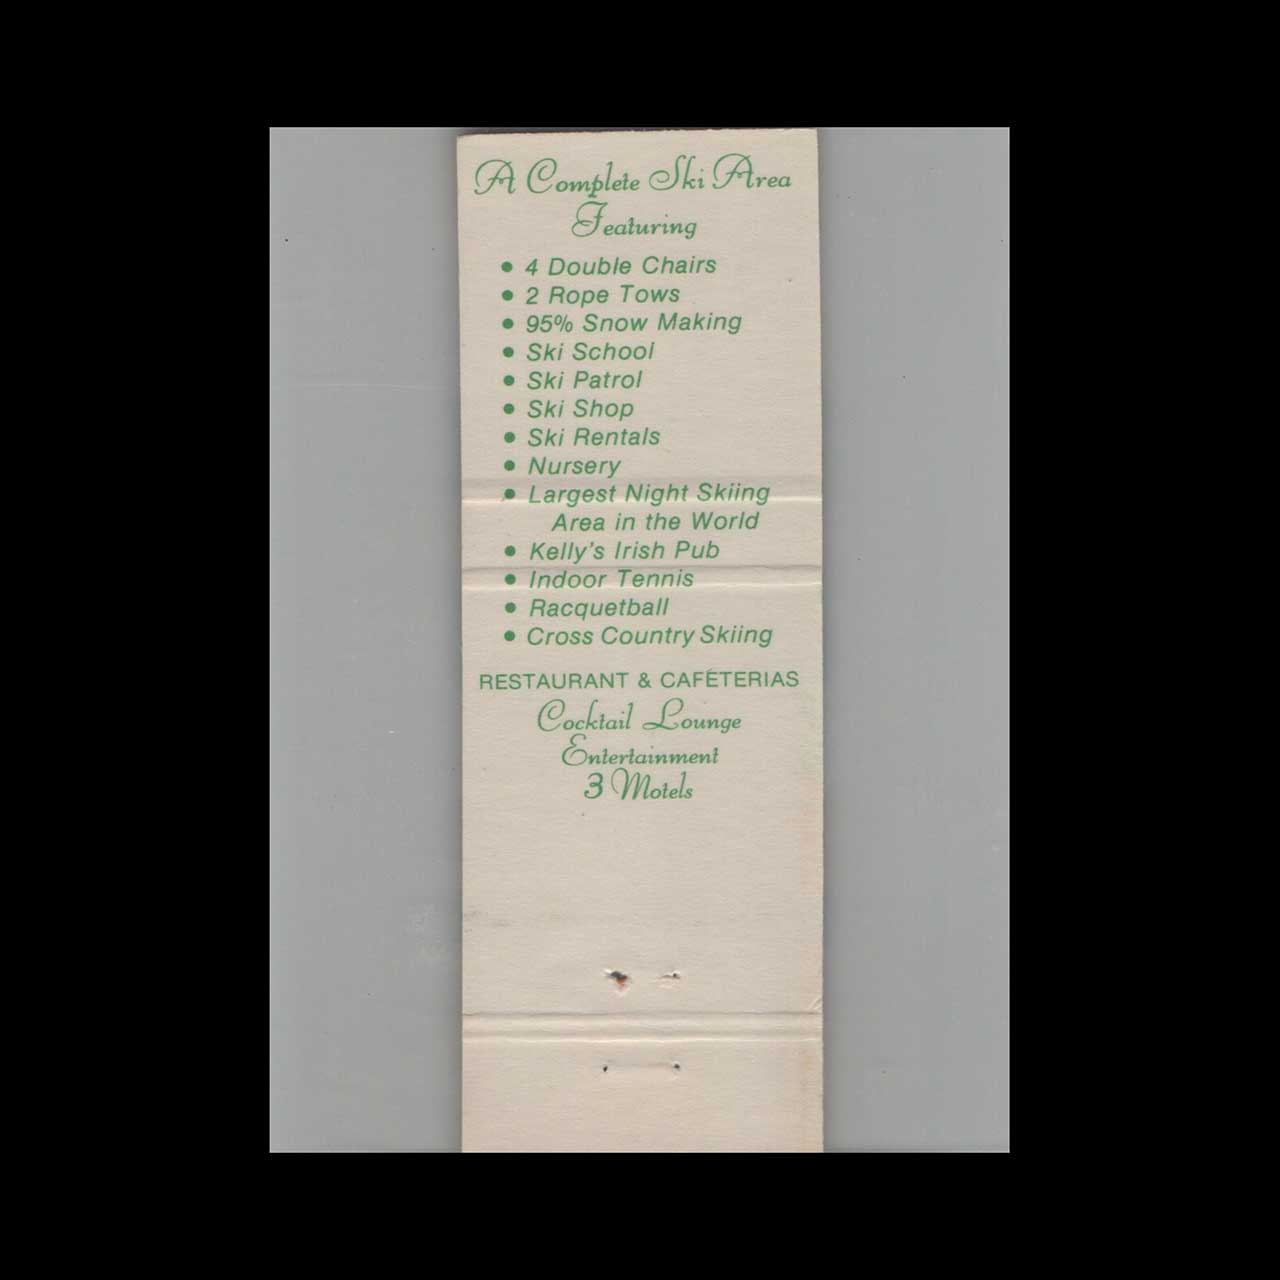 A Complete Ski Area
Featuring
• 4 Double Chairs
• 2 Rope Tows
• 95% Snow Making
• Ski School
• Ski Patrol
• Ski Shop
• Ski Rentals
• Nursery
• Largest Night Skiing
Area in the World
• Kelly's Irish Pub
• Indoor Tennis
• Racquetball
• Cross Country Skiing
RESTAURANT & CAFETERIAS
Cocktail Lounge
Entertainment
3 Motels